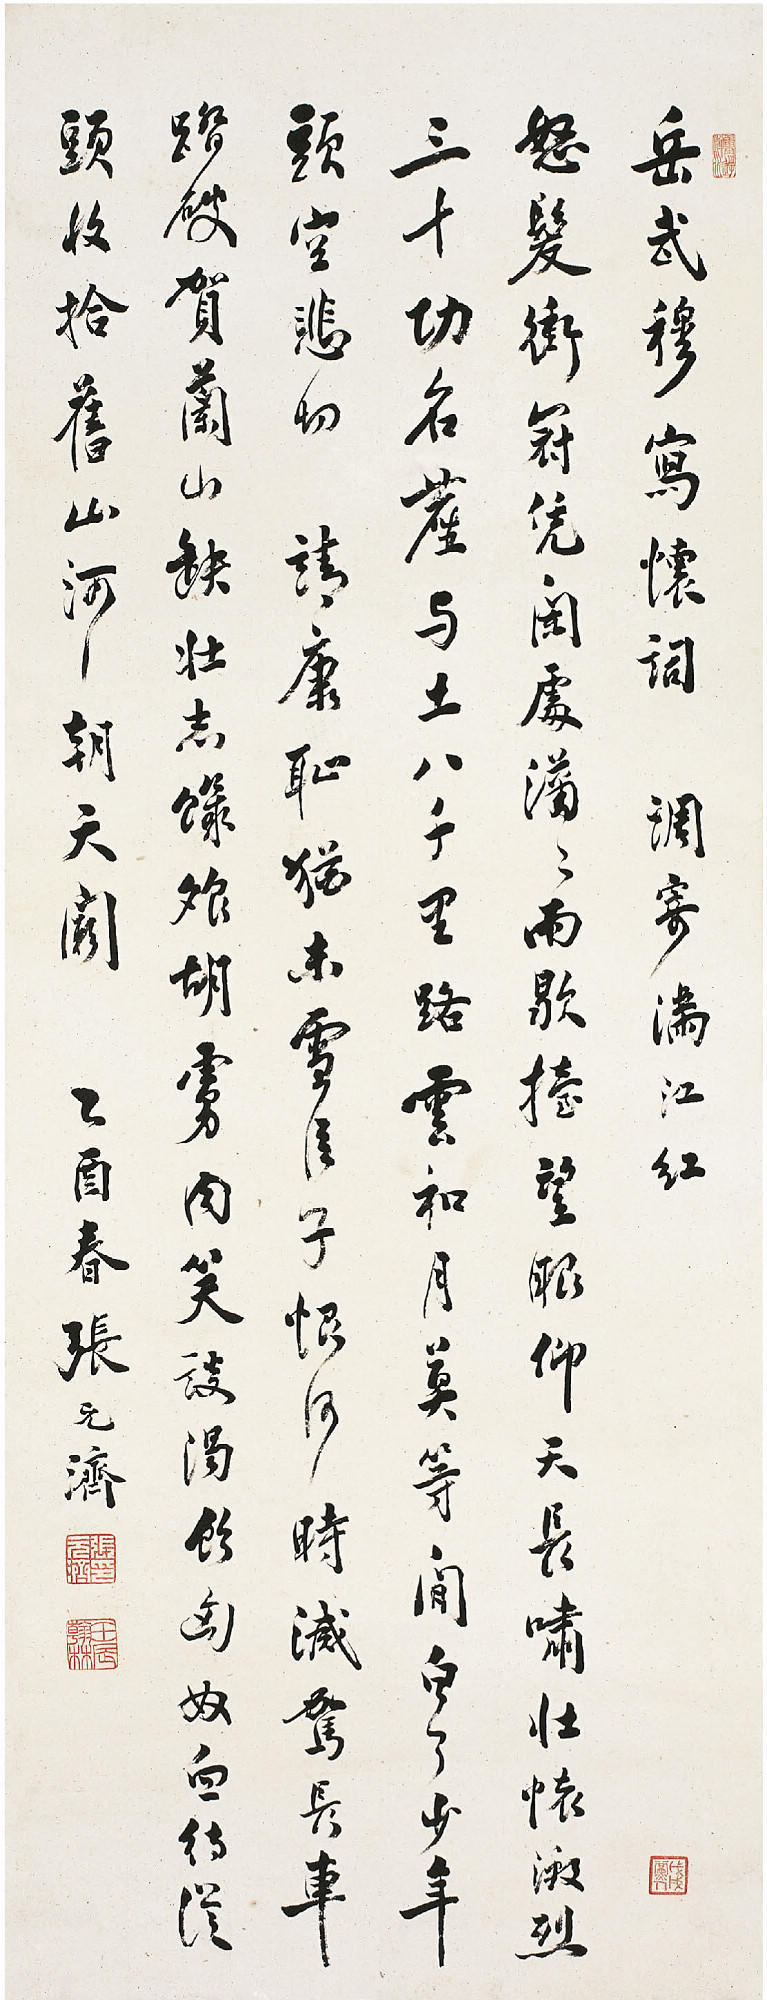 岳武穆寫懷詞　調寄滿江紅
怒髮衝冠凭闌處瀟〻雨歇擡望眼仰天長嘯壯懷激烈
三十功名塵与土八千里路雲和月莫等閒白了少年
頭空悲切　靖康恥猶未雪臣子恨何時滅駕長車
踏破賀蘭山缺壯志饑飡胡虜肉笑談渴飲匈奴血待從
頭收拾舊山河朝天闕　乙酉春張元濟
張元濟印
壬辰翰林